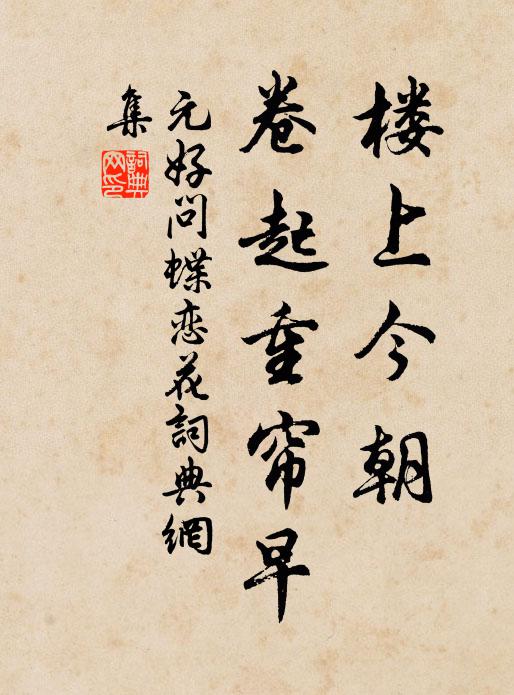 楼上今朝
卷起重帘早
元好问蝶恋花詞典網
集
詞典
网印